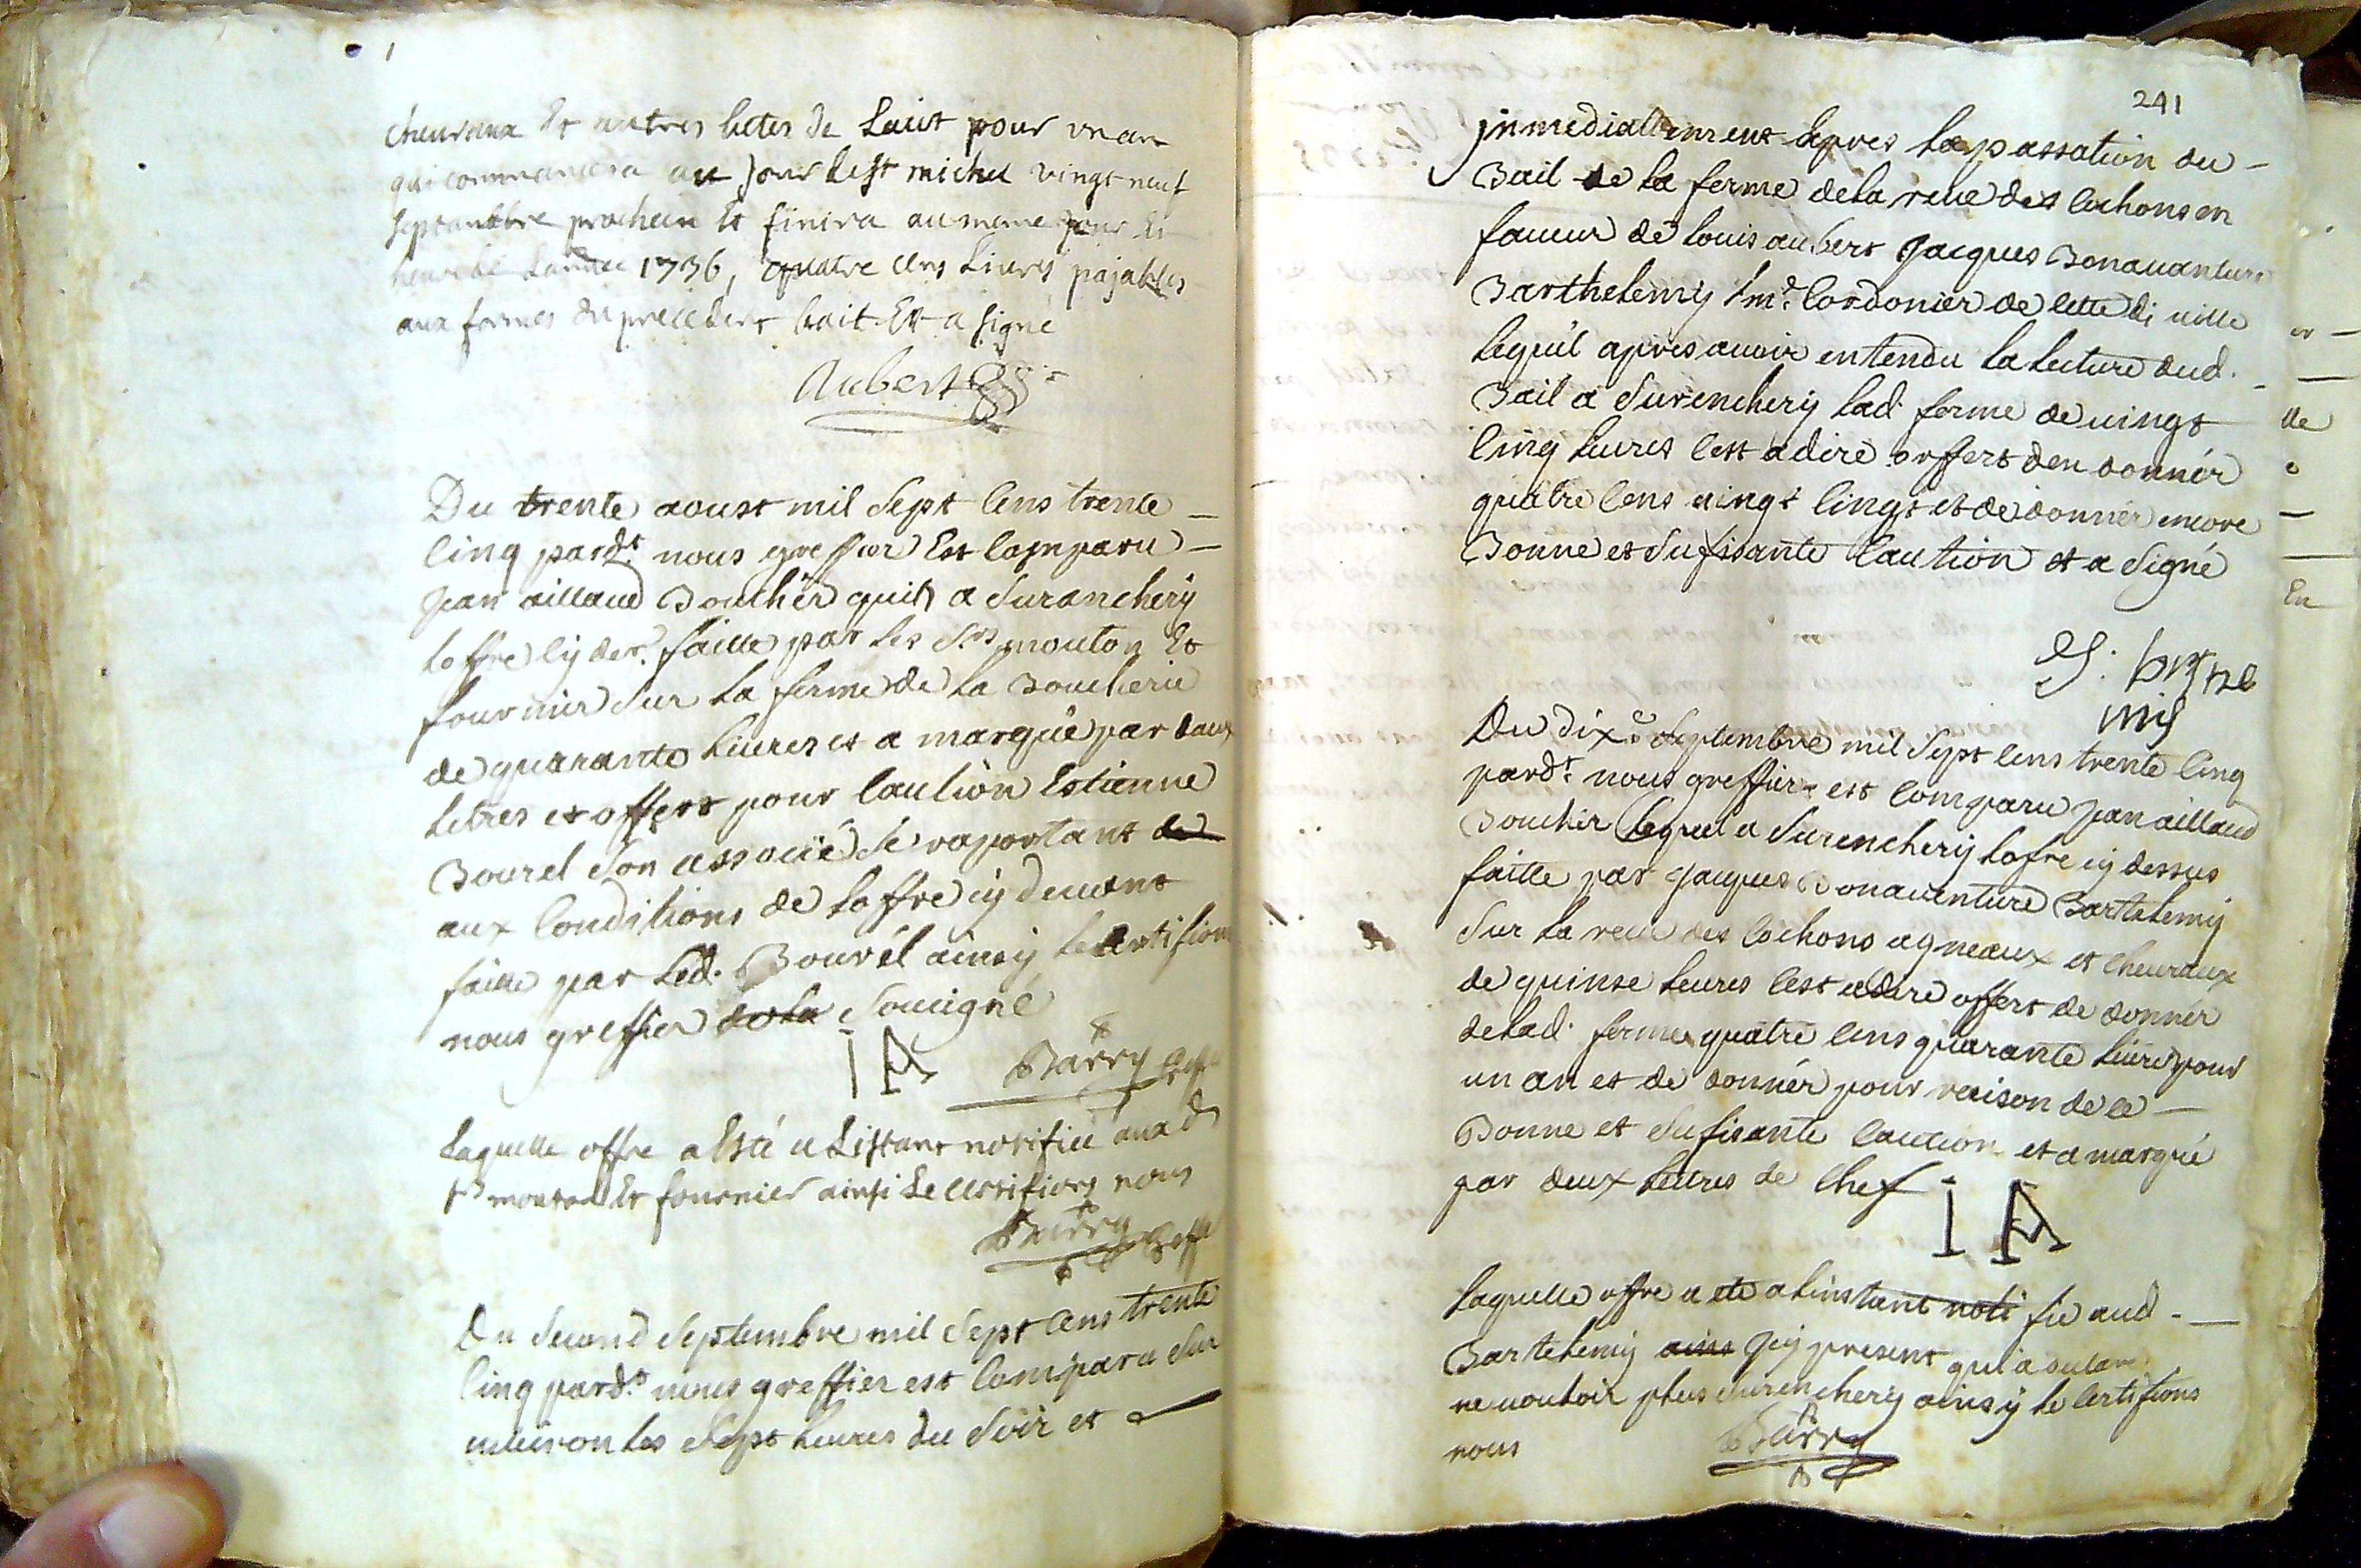 cheuraux et autres betes de Lait pour un an
qui commancera au jour de st michel vingt neuf
septambre prochain et finira au meme jour et
heure de Lannée 1736, quatre cens Livres pajables
aux formes du precedent bait Et a signé
Aubert
Du trente aoust mil sept cens trente
cinq pardt nous greffier Est comparu
jean aillaud Boucher quit a suranchery
Loffre cy der. faitte par les srs mouton Et
fournier sur la ferme de la Boucherie
de quarante Liures et a marqué par daux
Letres et offert pour caution Estienne
Bourel son associé se raportant de
aux conditions de Loffre cy deuant
faitte par Led. Bourél ainsy Le certifions
nous greffier de la Souvigné
I A Barry greff
Laquelle offre a Esté a Listant notifiée aux d
srs mouton Et fournier ainsi Le certifions nous
Barry Greff
Du second septembre mil sept cens trente
cinq pardt nous greffier est comparu sur
enuiron les sept heures du soir et
241
jnmediattement apres La passation du
Bail de la ferme de la reue des cochons en
faueur de Louis aubert jacques Bonauanture
Barthelemy md. cordonier de cette di uille
Lequél apres auoir entendu La Lecture dud.
Bail a surenchery Lad. ferme de uingt
cinq Liures cest adire offert den donnér
quatre cens uingt cingt et de donnér encore
Bonne et sufisante caution et a signé
Du dixe septembre mil sept cens trente cinq
pardt nous greffier est comparu jean aillaud
Boucher Lequel a surenchery Lofre cy dessus
faitte par jacques Bonauenture Bartelemy
sur La reue des cochons agneaux et cheuraux
de quinse Liures cest adire offert de donnér
de Lad. ferme quatre cens quarante Liures pour
un an et de donnér pour raison de ce
Bonne et sufisante caution et a marqué
par deux Letres de chef
I A
Laquelle offre a eté a Linstant noti fié aud.
Bartelemy ains jcy present qui a
ne uouloir plus surenchery ainsy le certifions
nous Barry